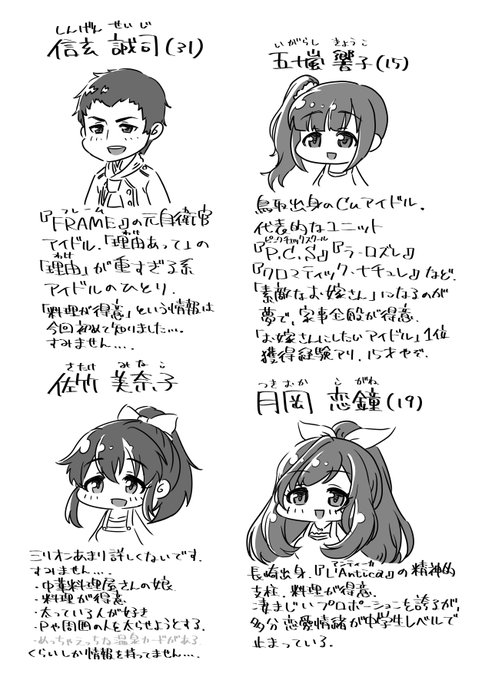 しんげん せいじ
信玄 誠司(31)
フレーム
『FRAME』の元自衛官
アイドル。「理由あって」の
わけ
「理由」が重すぎる系
アイドルのひとり。
「料理が得意」という情報は
今回初めて知りました…。
すみません…。
いがらし きょうこ
五十嵐 響子(15)
鳥取出身のCuアイドル。
代表的なユニット
ピンクチェックスクール
『P.C.S』『ラ・ロズレ』
『クロマティック・ナチュレ』など。
「素敵なお嫁さん」になるのが
夢で、家事全般が得意。
「お嫁さんにしたいアイドル」1位
獲得経験アリ。15才やぞ。
さたけ みなこ
佐竹 美奈子
ミリオンあまり詳しくないです。
すみません…。
・中華料理屋さんの娘
・料理が得意
・太っている人が好き
・Pや周囲の人を太らせようとする。
・めっちゃえっちな温泉カードがある
くらいしか情報を持ってません…。
つきおか こがね
月岡 恋鐘(19)
アンティーカ
長崎出身。『L'Antica』の精神的
支柱。料理が得意。
・凄まじいプロポーションを誇るが、
多分恋愛情緒が中学生レベルで
止まっている。